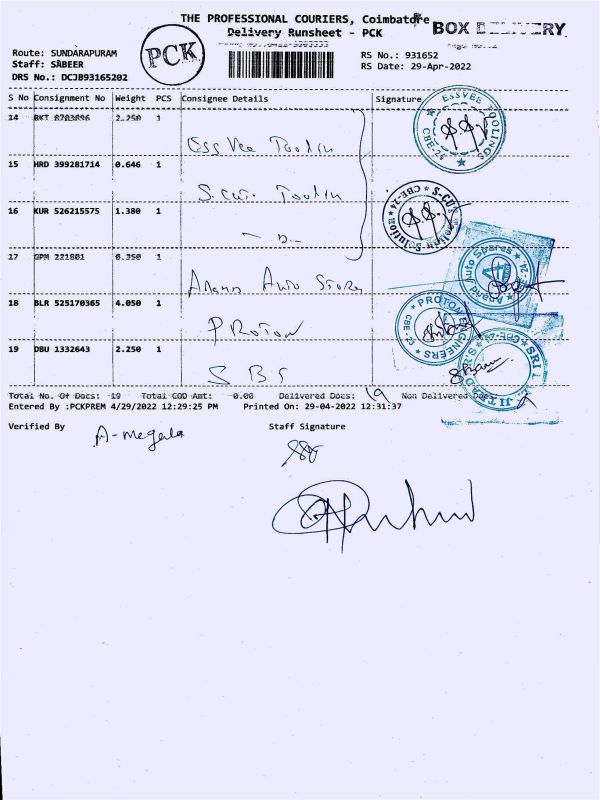 THE PROFESSIONAL COURIERS, Coimbatore
Delivery Runsheet - PCK
BOX DELIVERY
PCK
Route: SUNDARAPURAM
Staff: SABEER
DRS No.: DCJB93165202
RS No.: 931652
RS Date: 29-Apr-2022
S No Consignment No Weight PCS Consignee Details Signature
14 BKT 8703696 2.250 1
Ess Vee Toolin
15 HRD 399281714 0.646 1
S-cut Toolin
16 KUR 526215575 1.380 1
17 GPM 221801 0.350 1
Anand Auto Store
18 BLR 525170365 4.050 1
PROTON
19 DBU 1332643 2.250 1
S B S
ESSVEE TOOLINGS
CBE-24
S-CUT
CBE-24
Auto Spares
PROTON ENGINEERS
SRI
Total No. Of Docs: 19 Total COD Amt: 0.00 Delivered Docs: 19 Non Delivered Docs:
Entered By :PCKPREM 4/29/2022 12:29:25 PM Printed On: 29-04-2022 12:31:37
Verified By A-megala Staff Signature